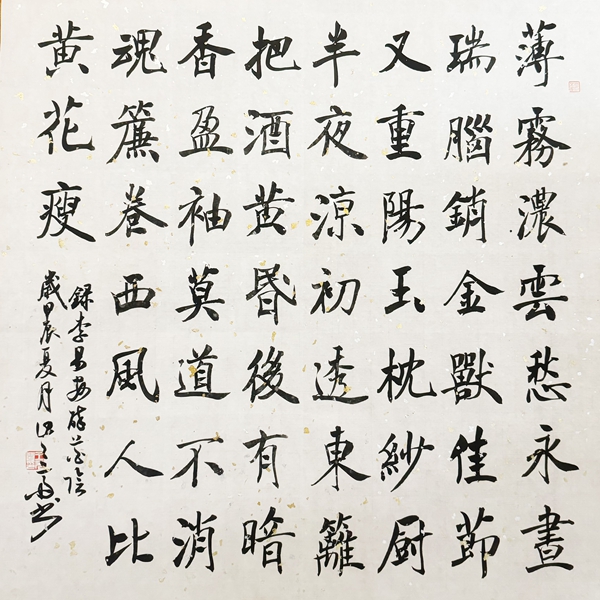 薄霧濃雲愁永晝
瑞腦銷金獸佳節
又重陽玉枕紗厨
半夜涼初透東籬
把酒黄昏後有暗
香盈袖莫道不消
魂簾卷西風人比
黄花瘦
録李易安醉花陰
歲甲辰夏月